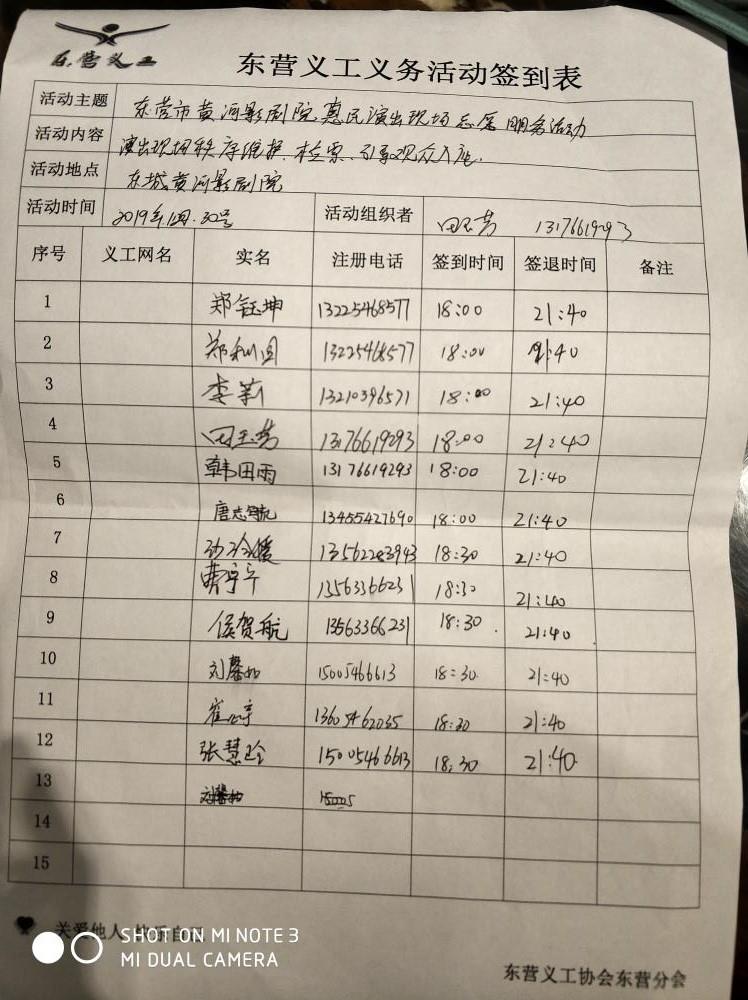 东营义工
东营义工义务活动签到表
活动主题 东营市黄河影剧院惠民演出现场志愿服务活动
活动内容 演出现场秩序维护、检票、引导观众入座.
活动地点 东城黄河影剧院
活动时间 2019年 30号 活动组织者 田玉芳 13176619293
序号 义工网名 实名 注册电话 签到时间 签退时间 备注
1 郑钰坤 13225468577 18:00 21:40
2 郑利国 13225468577 18:00 21:40
3 李莉 13210396571 18:00 21:40
4 田玉芳 13176619293 18:00 21:40
5 韩田雨 13176619293 18:00 21:40
6 唐志航 13455427690 18:00 21:40
7 13562283943 18:30 21:40
8 曹宇宁 13563366231 18:30 21:40
9 侯贺航 13563366231 18:30. 21:40.
10 刘馨如 15005466613 18:30. 21:40
11 崔心宁 13605462035 18:30 21:40
12 张慧玲 15005466613 18:30 21:40.
13
14
15
关爱他人 快乐自己
SHOT ON MI NOTE 3
MI DUAL CAMERA
东营义工协会东营分会